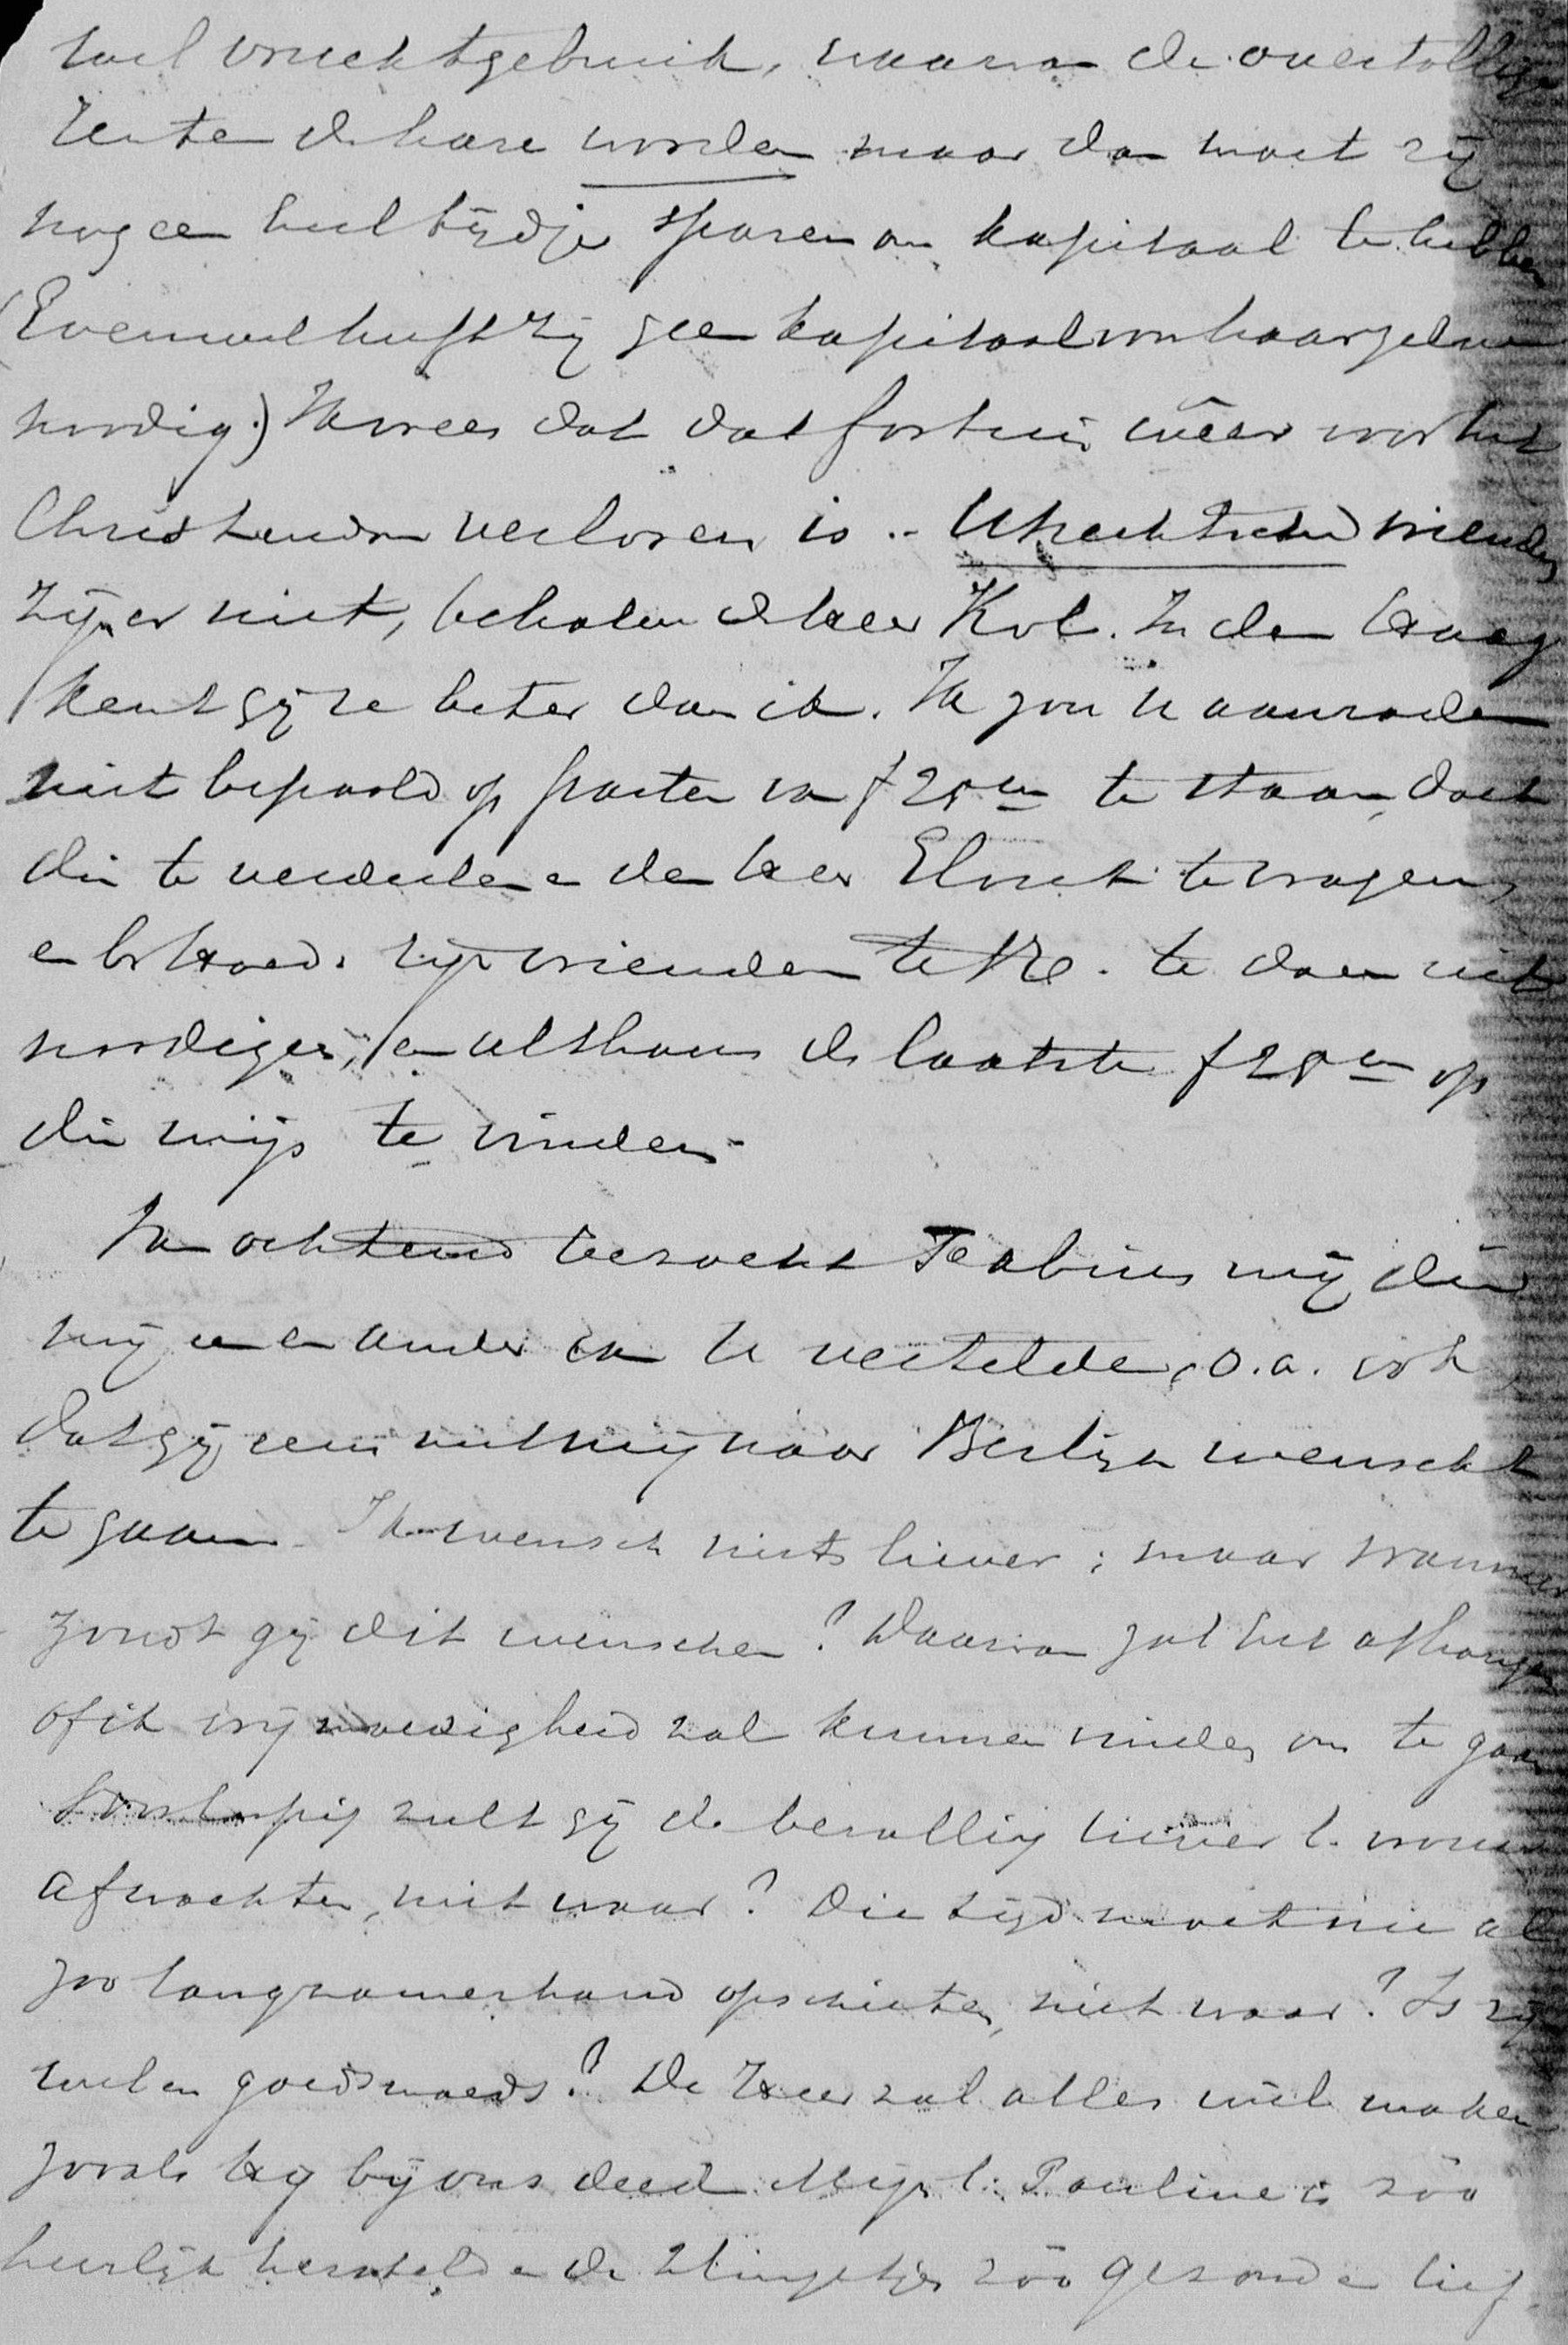 wel vruchtgebruik, waarvan de overtollige
renten de hare worden maar dan moet zij
nog een heel tijdje sparen om kapitaal te hebben
(Evenwel heeft zij geen kapitaal van haarzelve
noodig.) Ik vrees dat dat fortuin weer voor het
Christendom verloren is.. Utrechtsche vrienden
zijn er niet, behalve de heer Kol. In den Haag
kent gij ze beter dan ik. Ik zou u aanraden
niet bepaald op parten van f 25 m te staan, doch
die te verdeelen en den heer Elout te vragen,
en br Hoed. zijn vrienden te te doen uit
noodigen, en althans de laatste f 25 m op
die wijs te vinden.
Van ochtend bezocht Feabius mij die
mij een en ander van u vertelde, o.a. ook
dat gij eens met mij naar Berlijn wenscht
te gaan. Ik wensch niets liever; maar wanneer
zoudt gij dit wenschen? Daarvan zal het afhangen
of ik vrijmoedigheid zal kunnen vinden om te gaan
Voorloopig zult gij de bevalling uwer l. vrouw
afwachten, niet waar? Die tijd moet nu al
zoo langzamerhand opschieten, niet waar? Is zij
wel en goedsmoeds? De Heer zal alles wel maken
zooals Hij bij ons deed. Mijn l. Pauline is zóó
heerlijk hersteld en de tz zóó gezond en lief.